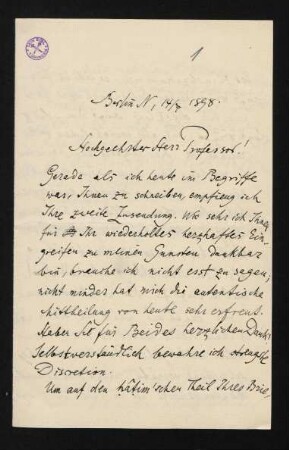 1
Berlin N, 14/5 1898.
Hochgeehrter Herr Professor!
Gerade als ich heute im Begriffe
war, Ihnen zu schreiben, empfieng ich
Ihre zweite Zusendung. Wie sehr ich Ihnen
für Ihr wiederholtes herzhaftes Ein-
greifen zu meinen Gunsten dankbar
bin, brauche ich nicht erst zu sagen;
nicht minder hat mich die autentische
Mittheilung von heute sehr erfreut.
Haben Sie für Beides herzlichen Dank.
Selbstverständlich bewahre ich strengste
Discretion.
Um auf den Ḳatim'schen Theil Ihres Brie-